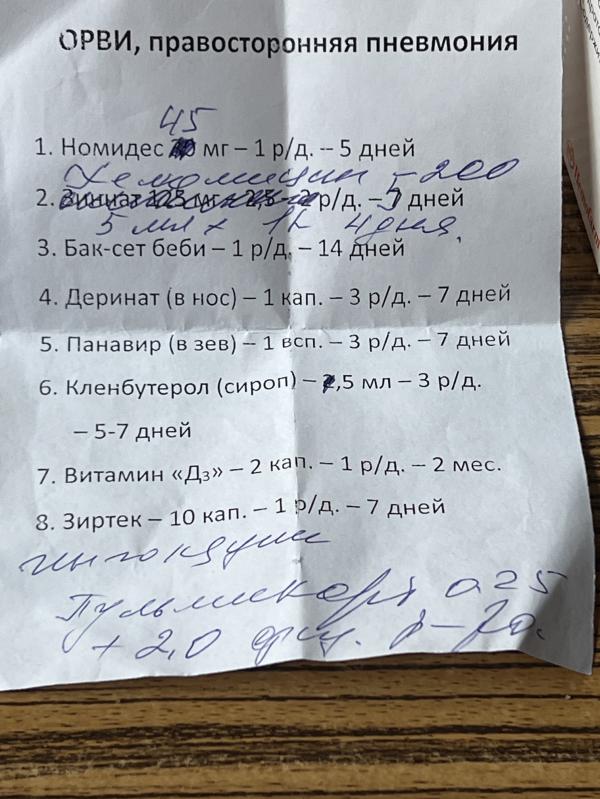 ОРВИ, правосторонняя пневмония
45
1. Номидес мг – 1 р/д. – 5 дней
Хемомицин – 200
2. Зиннат 125 мг – 2,5 – 2 р/д. – 5 дней
5 мл х 1 4 дня.
3. Бак-сет беби – 1 р/д. – 14 дней
4. Деринат (в нос) – 1 кап. – 3 р/д. – 7 дней
5. Панавир (в зев) – 1 всп. – 3 р/д. – 7 дней
6. Кленбутерол (сироп) – ,5 мл – 3 р/д.
– 5-7 дней
7. Витамин «Д₃» – 2 кап. – 1 р/д. – 2 мес.
8. Зиртек – 10 кап. – 1 р/д. – 7 дней
ингаляции
Пульмикорт 0,25
+ 2,0 физ.